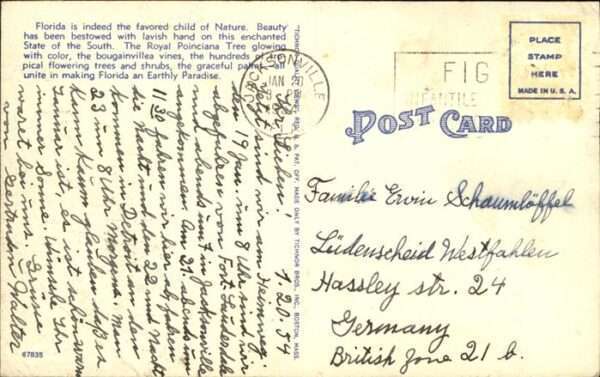 Florida is indeed the favored child of Nature. Beauty
has been bestowed with lavish hand on this enchanted
State of the South. The Royal Poinciana Tree glowing
with color, the bougainvillea vines, the hundreds of
pical flowering trees and shrubs, the graceful palms all
unite in making Florida an Earthly Paradise.
JACKSONVILLE
JAN
FIG
INFANTILE
PLACE
STAMP
HERE
MADE IN U.S.A.
POST CARD
1.20.54
Ihr Lieben!
Jetzt sind wir am Heimweg.
den 19 Jan. um 8 Uhr sind wir
abgefahren von Fort Lauderdale
und abends um 7 in Jacksonville
angekommen. Am 21. abends um
11:30 fahren wir hier ab fahren
die Nacht und den 22 und Nacht
kommen in Detroit an den
23 um 8 Uhr Morgens. Man
kann kaum glauben daß es
Januar ist, es ist schön warm
immer Sone. Wünsche Ihr
waret bei uns. Grüsse
von Gertrudon Walter
TICHNOR QUALITY VIEWS, REG. U. S. PAT. OFF. MADE ONLY BY TICHNOR BROS., INC., BOSTON, MASS.
Familie Ervin Schaumlöffel
Lüdenscheid Westfahlen
Hassley str. 24
Germany
British Zone 21 b.
67835